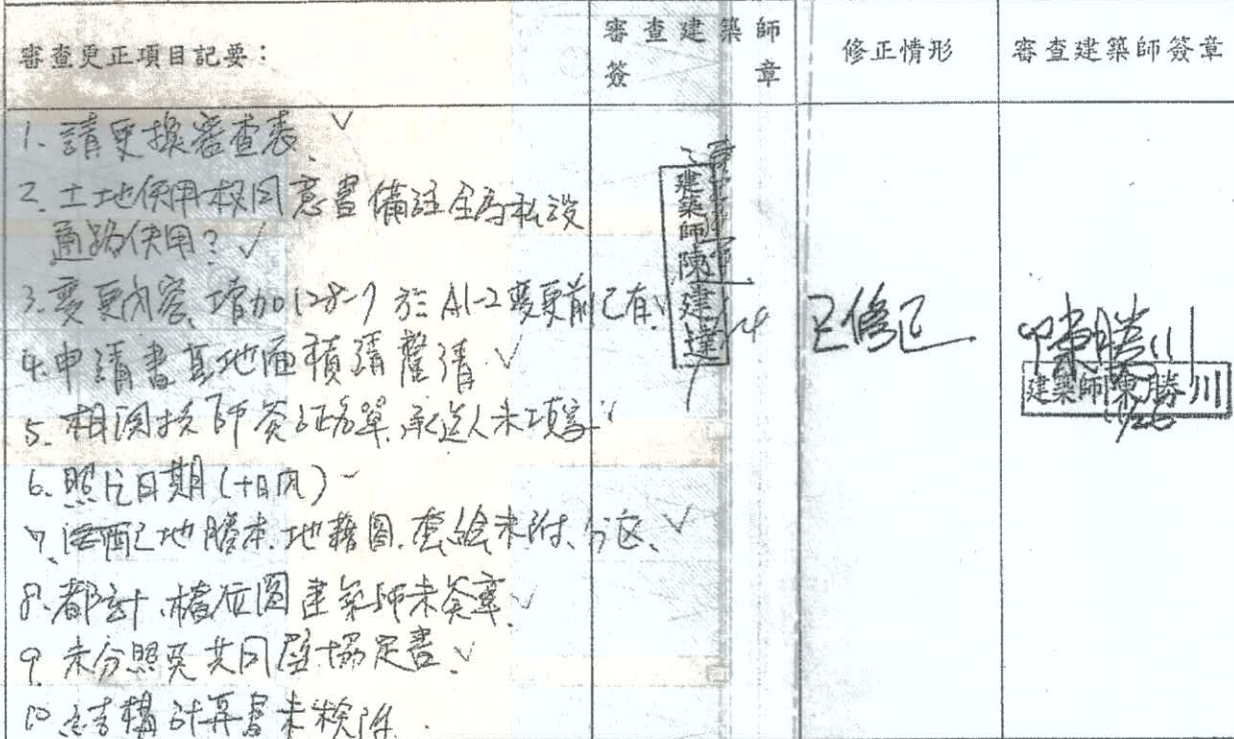 審查更正項目記要：
審查建築師
簽章
修正情形
審查建築師簽章
1. 請更換審查表. ✓
2. 土地使用權同意書備註全為私設
通路使用? ✓
3. 變更內容, 增加128-7 於 A1-2變更前已有. ✓
4. 申請書基地面積請釐清 ✓
5. 相關技師簽證名單, 承造人未填寫 ✓
6. 照片日期(十日內) ✓
7. 地謄本. 地藉圖. 套繪未附、分区、✓
8. 都計、樁位圖建築師未簽章. ✓
9. 未分照免共同壁協定書. ✓
10. 結構計算書未檢附.
建築師陳建達
已修正
陳勝川
建築師陳勝川